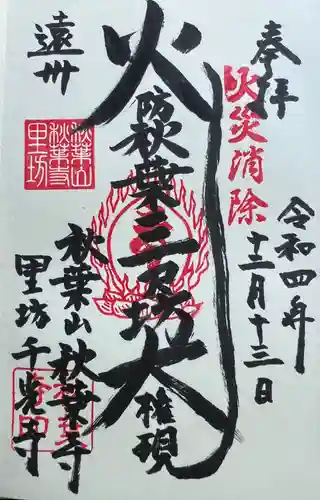 奉拝
火災消除
令和四年
十二月十三日
火防
秋葉三尺坊大
権現
遠州
秋葉山
秋葉寺
里坊
秋葉山秋葉寺
里坊千光寺